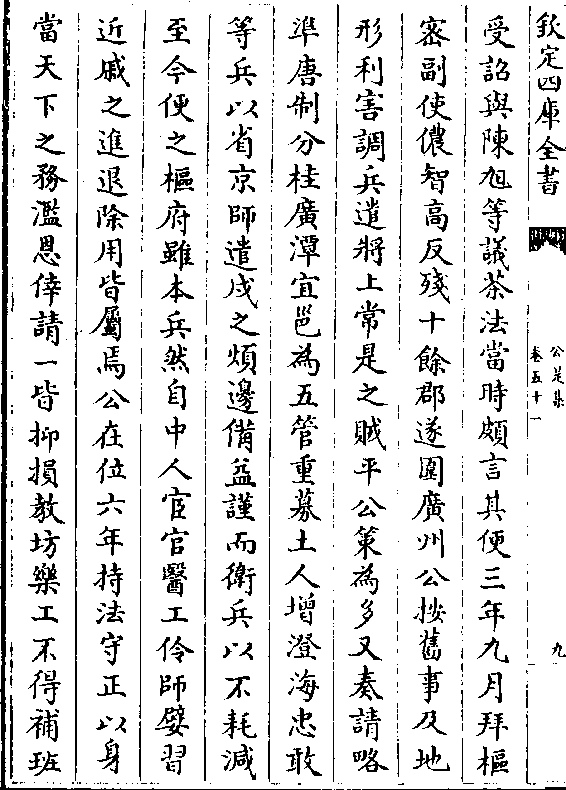 欽定四庫全書
公是集
卷五十一
九
受詔與陳旭等議茶法當時頗言其便三年九月拜樞
宻副使儂智高反殘十餘郡遂圍廣州公按舊事及地
形利害調兵遣將上常是之賊平公策為多又奏請略
準唐制分桂廣潭宜邕為五管重募土人增澄海忠敢
等兵以省京師遣戍之煩邊備益謹而衛兵以不耗減
至今便之樞府雖本兵然自中人宦官醫工伶師嬖習
近戚之進退除用皆屬焉公在位六年持法守正以身
當天下之務濫恩倖請一皆抑損教坊樂工不得補班